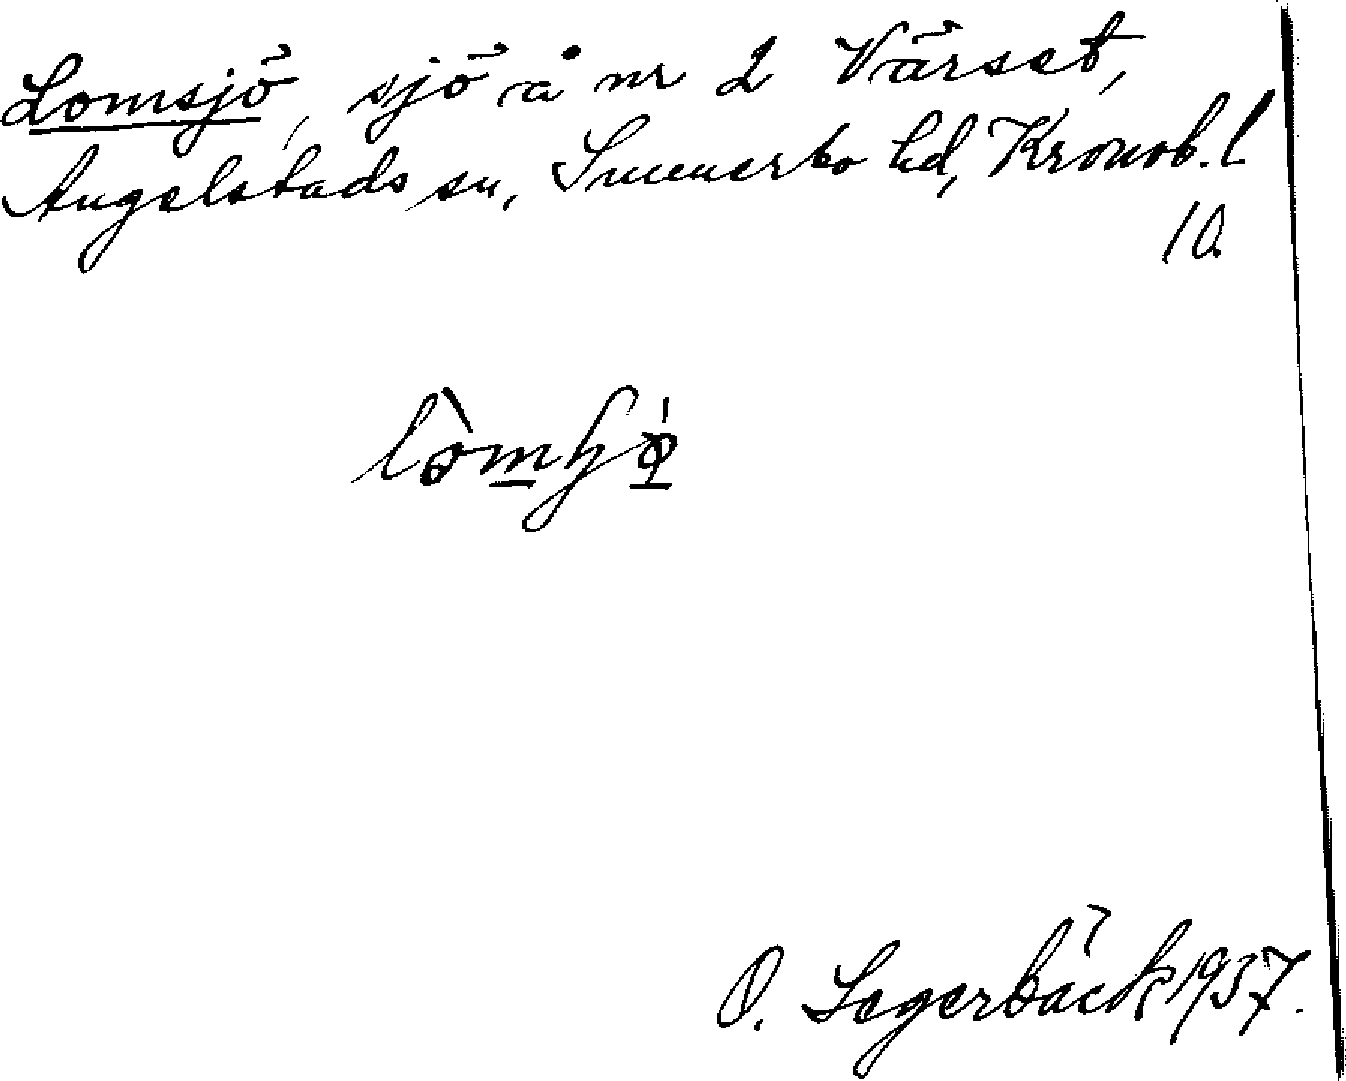 Lomsjö, sjö å nr 2 Värset,
Angelstads sn, Sunnerbo hd, Kronob. l
10.
O. Segerbäck 1937.